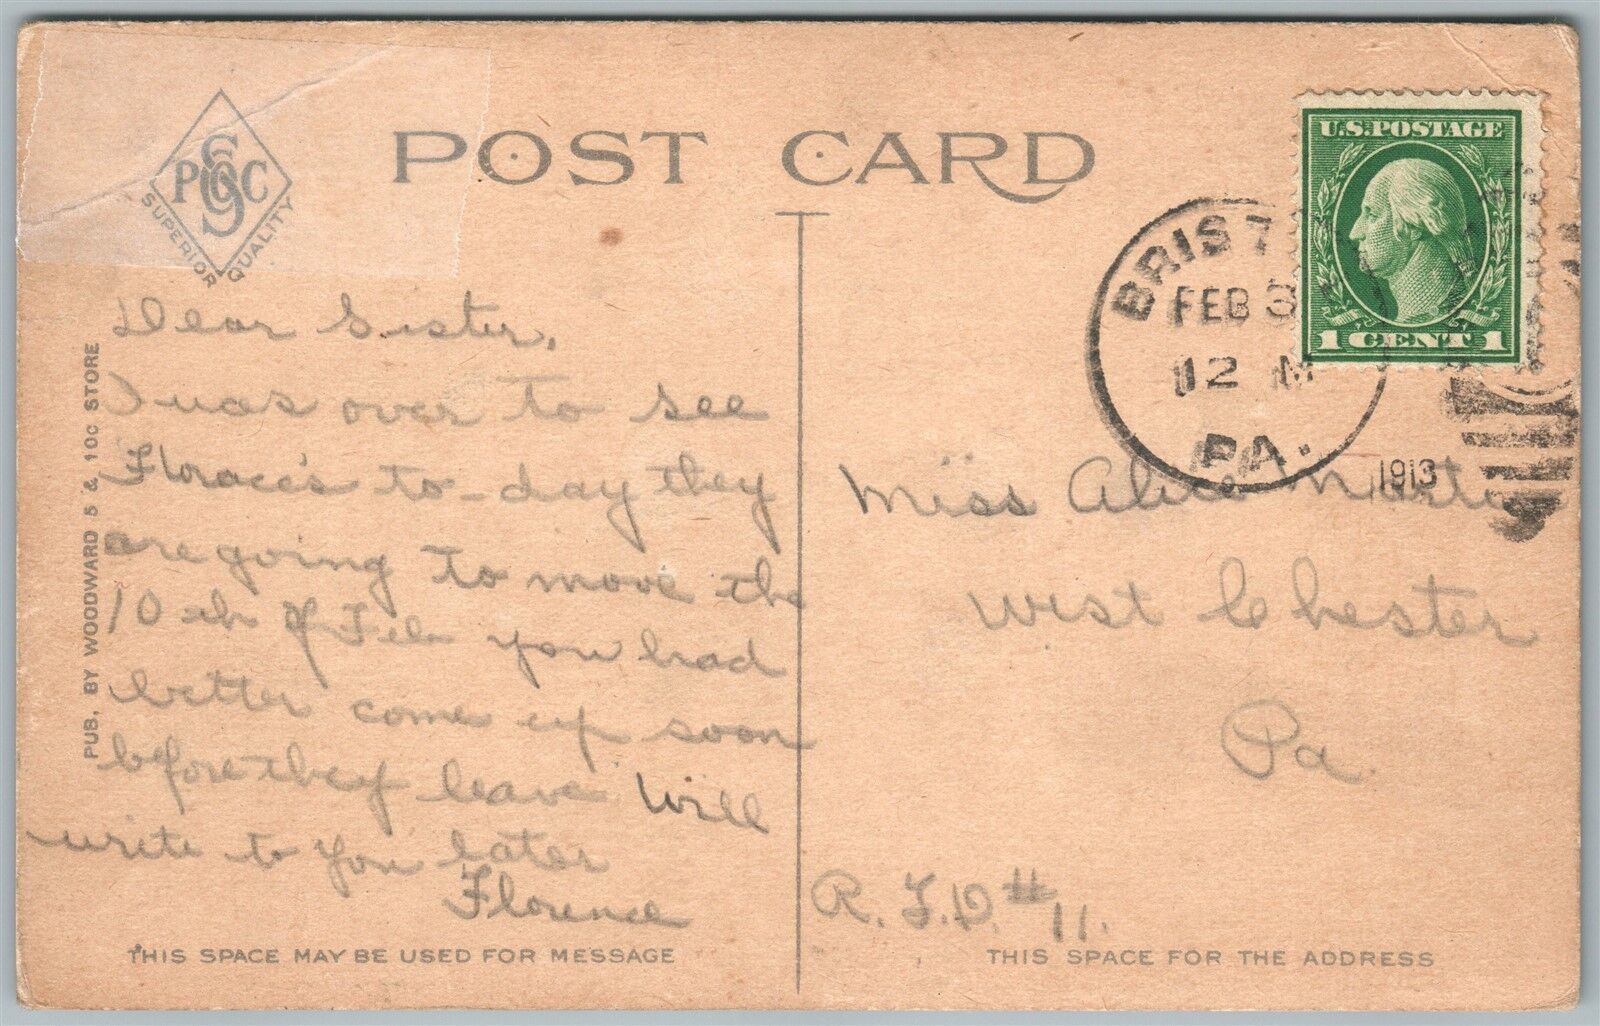 PGC
SGS
SUPERIOR QUALITY
POST CARD
U.S. POSTAGE
1 CENT 1
BRIST
FEB 3
12 M
PA.
1913
PUB. BY WOODWARD 5 & 10c STORE
Dear Sister,
I was over to see
to-day they
are going to move the
10th of Feb you had
better come up soon
before they leave Will
write to you later
Florence
THIS SPACE MAY BE USED FOR MESSAGE
Miss Alice
West Chester
Pa.
R.F.D. # 11.
THIS SPACE FOR THE ADDRESS